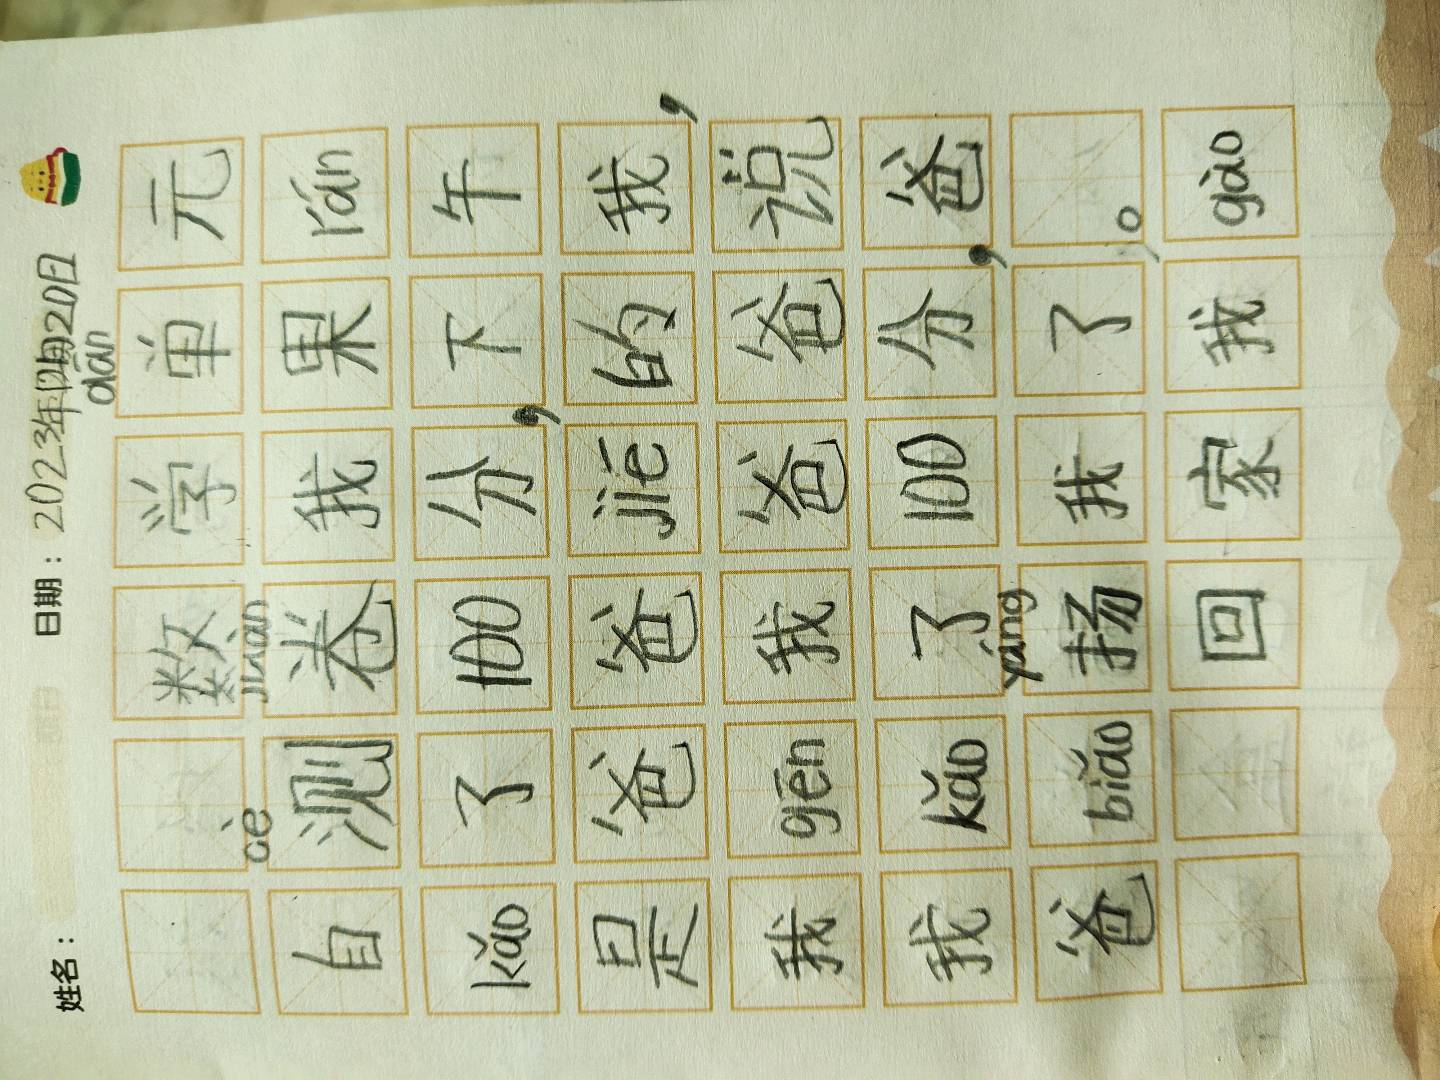 姓名： 日期：2023年12月20日
dān
数学单元
cè juàn
自测卷我果rán
kǎo了100分，下午
是爸爸jiē的我，
我gēn我爸爸说
我kǎo了100分，爸
yáng
爸biǎo扬我了。
回家我gào